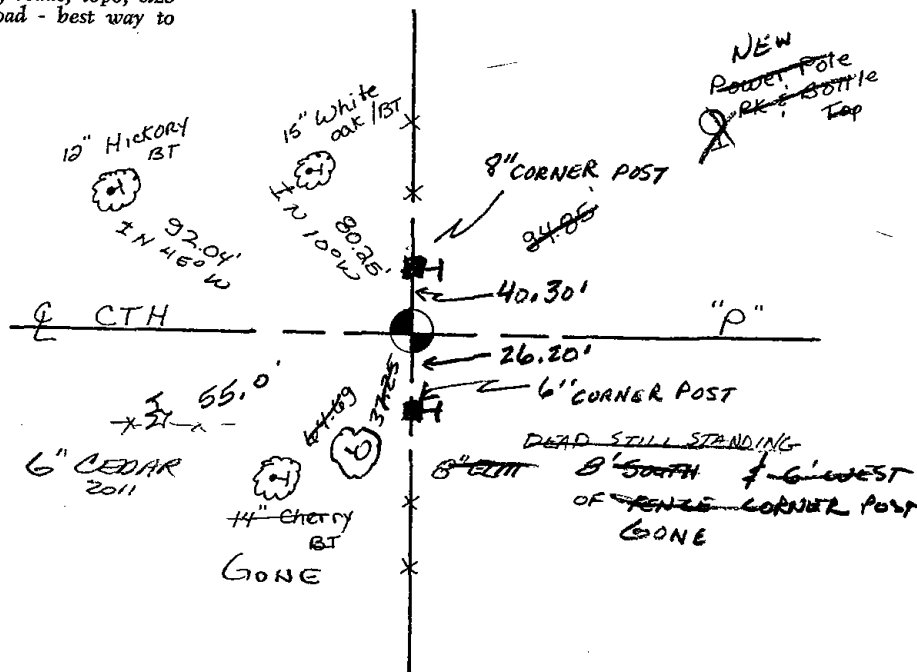 oad - best way to
NEW
Power Pole
PK & Bottle
Top
12" HICKORY
BT
15" White
oak/BT
8" CORNER POST
92.04'
80.25'
N 100 W
84.85'
40.30'
CTH
"P"
26.20'
55.0'
6" CORNER POST
64.69
37.25
6" CEDAR
2011
14" Cherry
BT
GONE
DEAD STILL STANDING
8" ELM 8' SOUTH & 6' WEST
OF FENCE CORNER POST
GONE